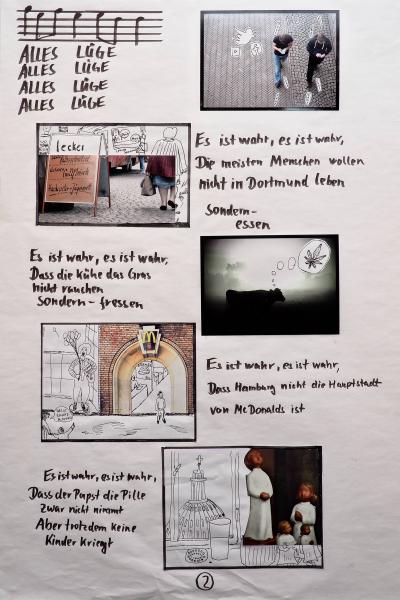 ALLES LÜGE
ALLES LÜGE
ALLES LÜGE
ALLES LÜGE
lecker
Es ist wahr, es ist wahr,
Die meisten Menschen wollen
nicht in Dortmund leben
sondern-
essen
Es ist wahr, es ist wahr,
Dass die Kühe das Gras
nicht rauchen
sondern - fressen
Es ist wahr, es ist wahr,
Dass Hamburg nicht die Hauptstadt
von McDonalds ist
Es ist wahr, es ist wahr,
Dass der Papst die Pille
zwar nicht nimmt
Aber trotzdem keine
Kinder Kriegt
2